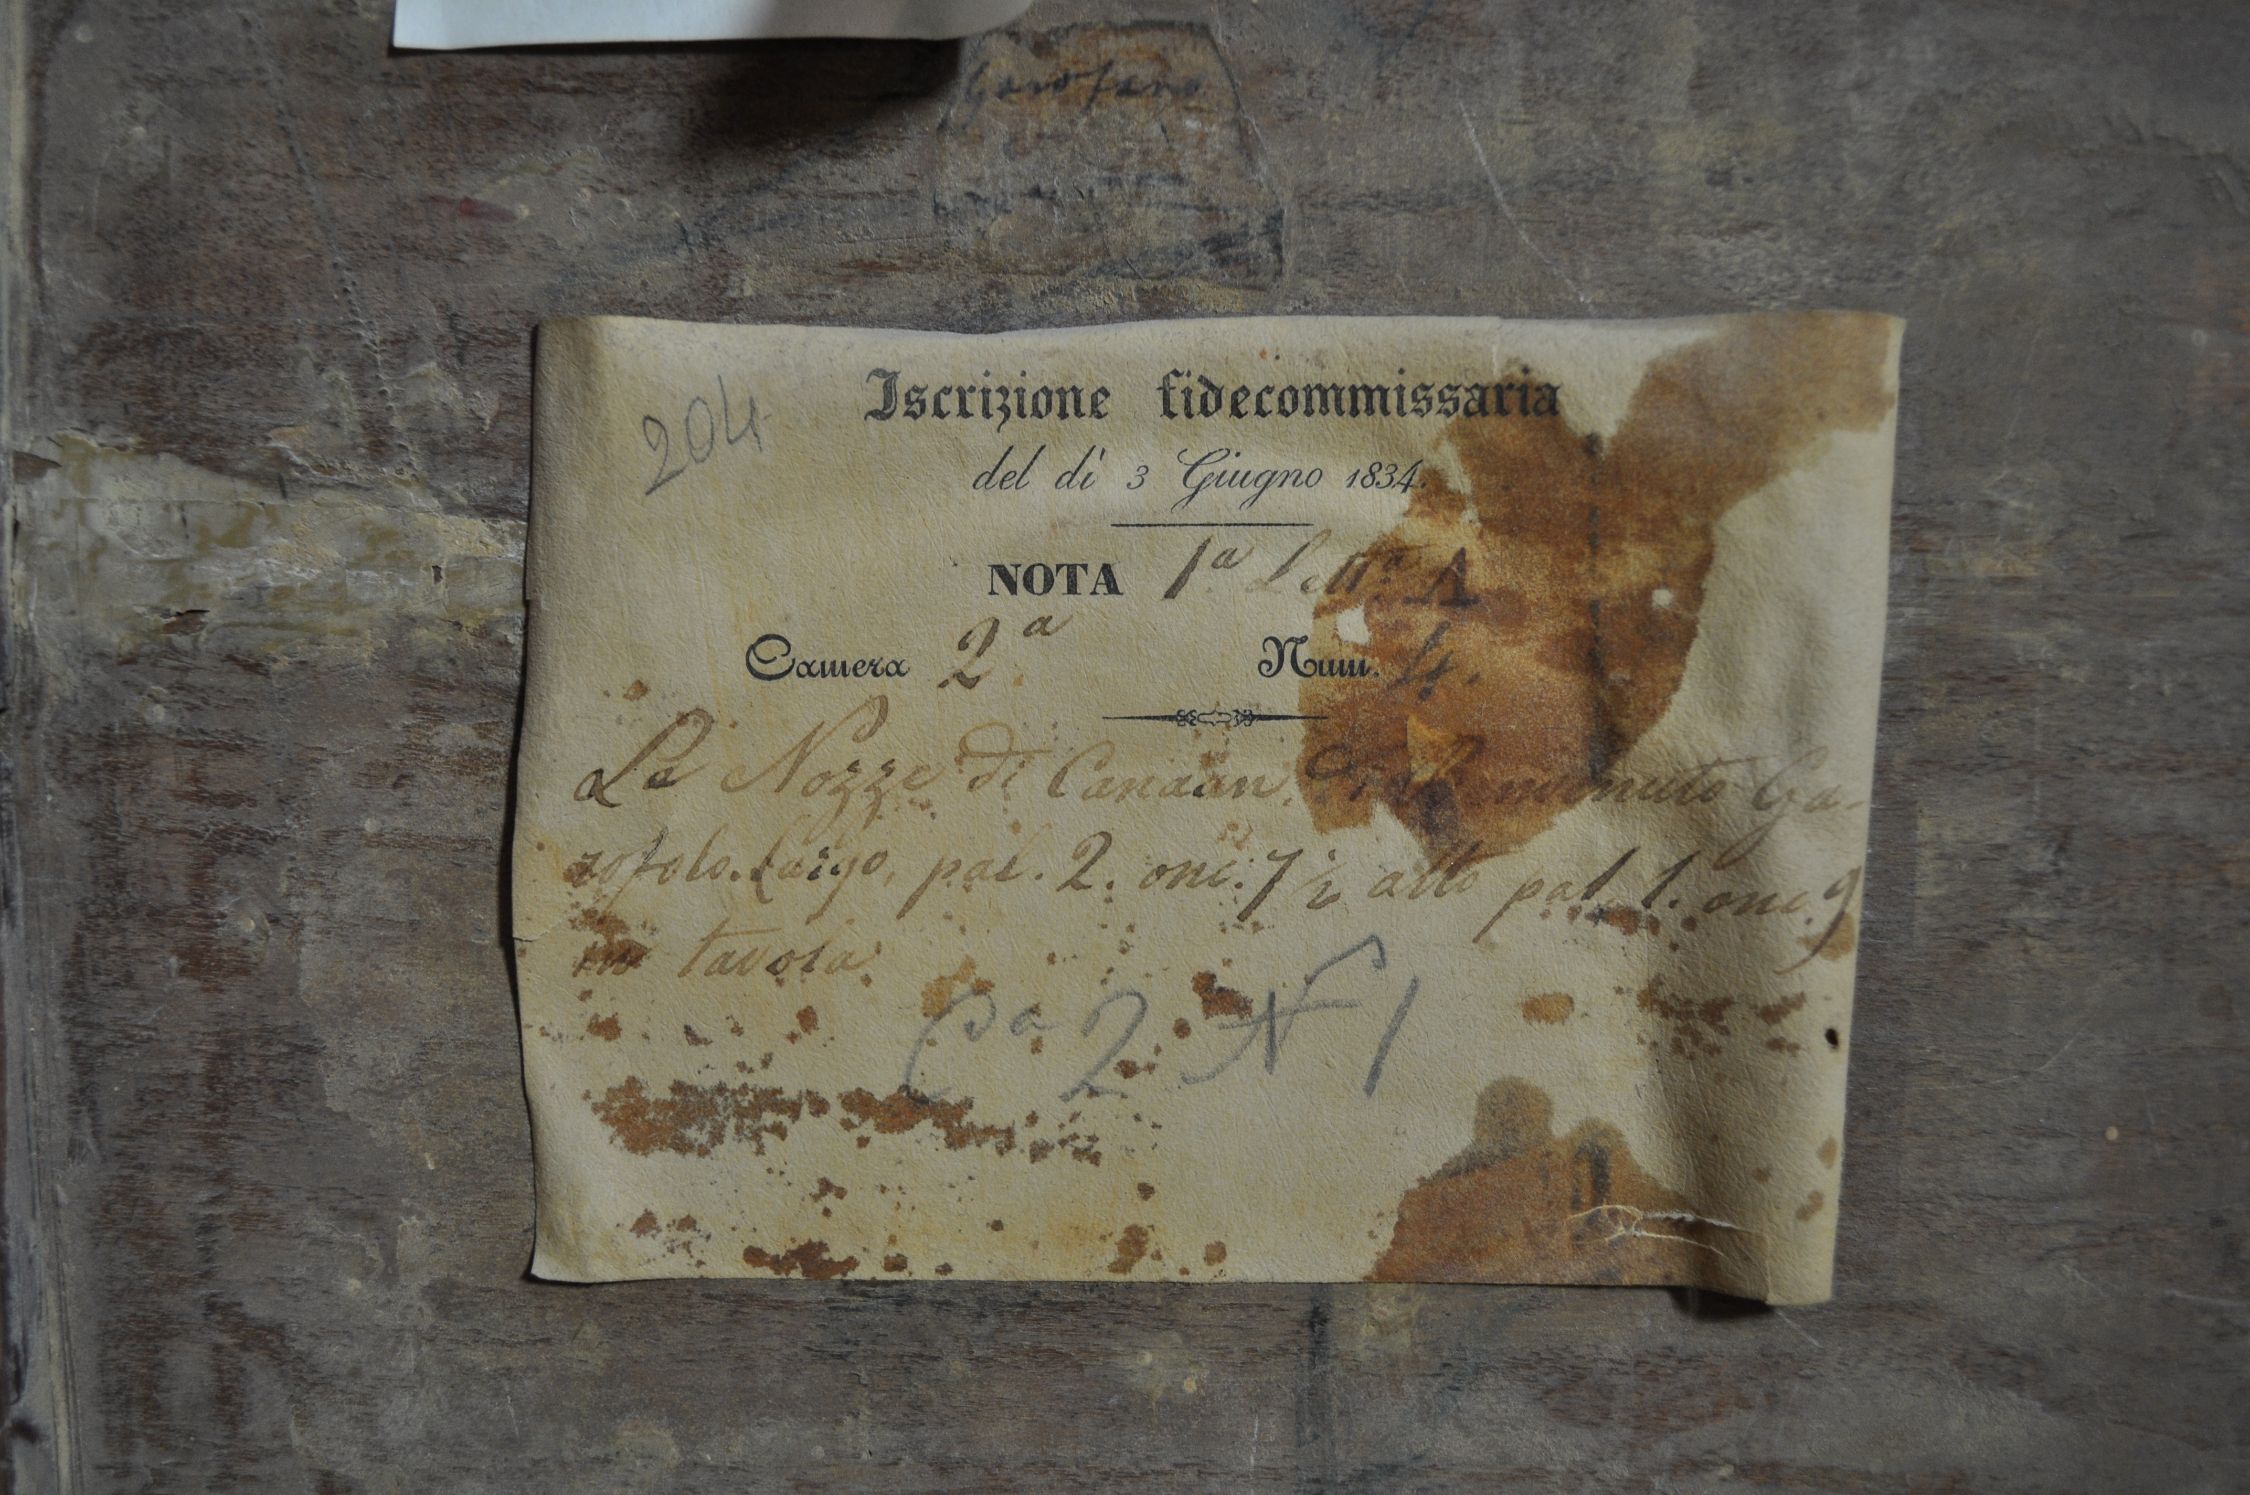 Garofano
204
Iscrizione fidecommissaria
del dì 3 Giugno 1834.
NOTA 1ª Lettª A
Camera 2ª Num. 4.
Le Nozze di Canaan, di Benvenuto Ga-
rofolo. largo, pal. 2. onc. 7½ alto pal. 1. onc. 9
in tavola
Cª 2 N 1